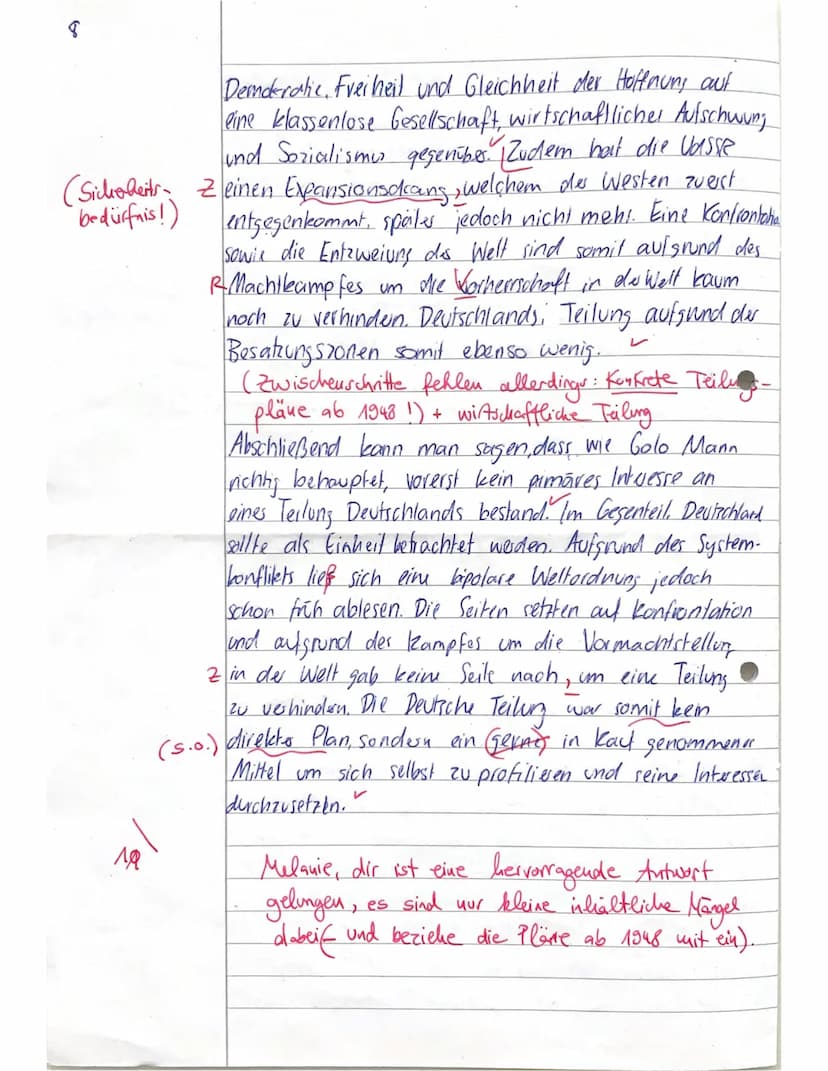 8
Demokratie, Freiheit und Gleichheit der Hoffnung auf
eine klassenlose Gesellschaft, wirtschaftlicher Aufschwung
und Sozialismus gegenüber. Zudem hat die UdSSR
(Sicherheits-
bedürfnis!)
Z einen Expansionsdrang, welchem der Westen zuerst
entgegenkommt, später jedoch nicht mehr. Eine Konfrontation
sowie die Entzweiung der Welt sind somit aufgrund des
R Machtkampfes um die Vorherrschaft in der Welt kaum
noch zu verhindern. Deutschlands Teilung aufgrund der
Besatzungszonen somit ebenso wenig.
(Zwischenschritte fehlen allerdings: Konkrete Teilungs-
pläne ab 1948!) + wirtschaftliche Teilung
Abschließend kann man sagen, dass wie Golo Mann
richtig behauptet, vorerst kein primäres Interesse an
einer Teilung Deutschlands bestand. Im Gegenteil, Deutschland
sollte als Einheit betrachtet werden. Aufgrund des System-
konflikts ließ sich eine bipolare Weltordnung jedoch
schon früh ablesen. Die Seiten setzten auf Konfrontation
und aufgrund des Kampfes um die Vormachtstellung
Z in der Welt gab keine Seite nach, um eine Teilung
zu verhindern. Die Deutsche Teilung war somit kein
(s.o.) direkter Plan, sondern ein gerne in Kauf genommener
Mittel um sich selbst zu profilieren und seine Interessen
durchzusetzen.
Melanie, dir ist eine hervorragende Antwort
gelungen, es sind nur kleine inhaltliche Mängel
dabei (und beziehe die Pläne ab 1948 mit ein).